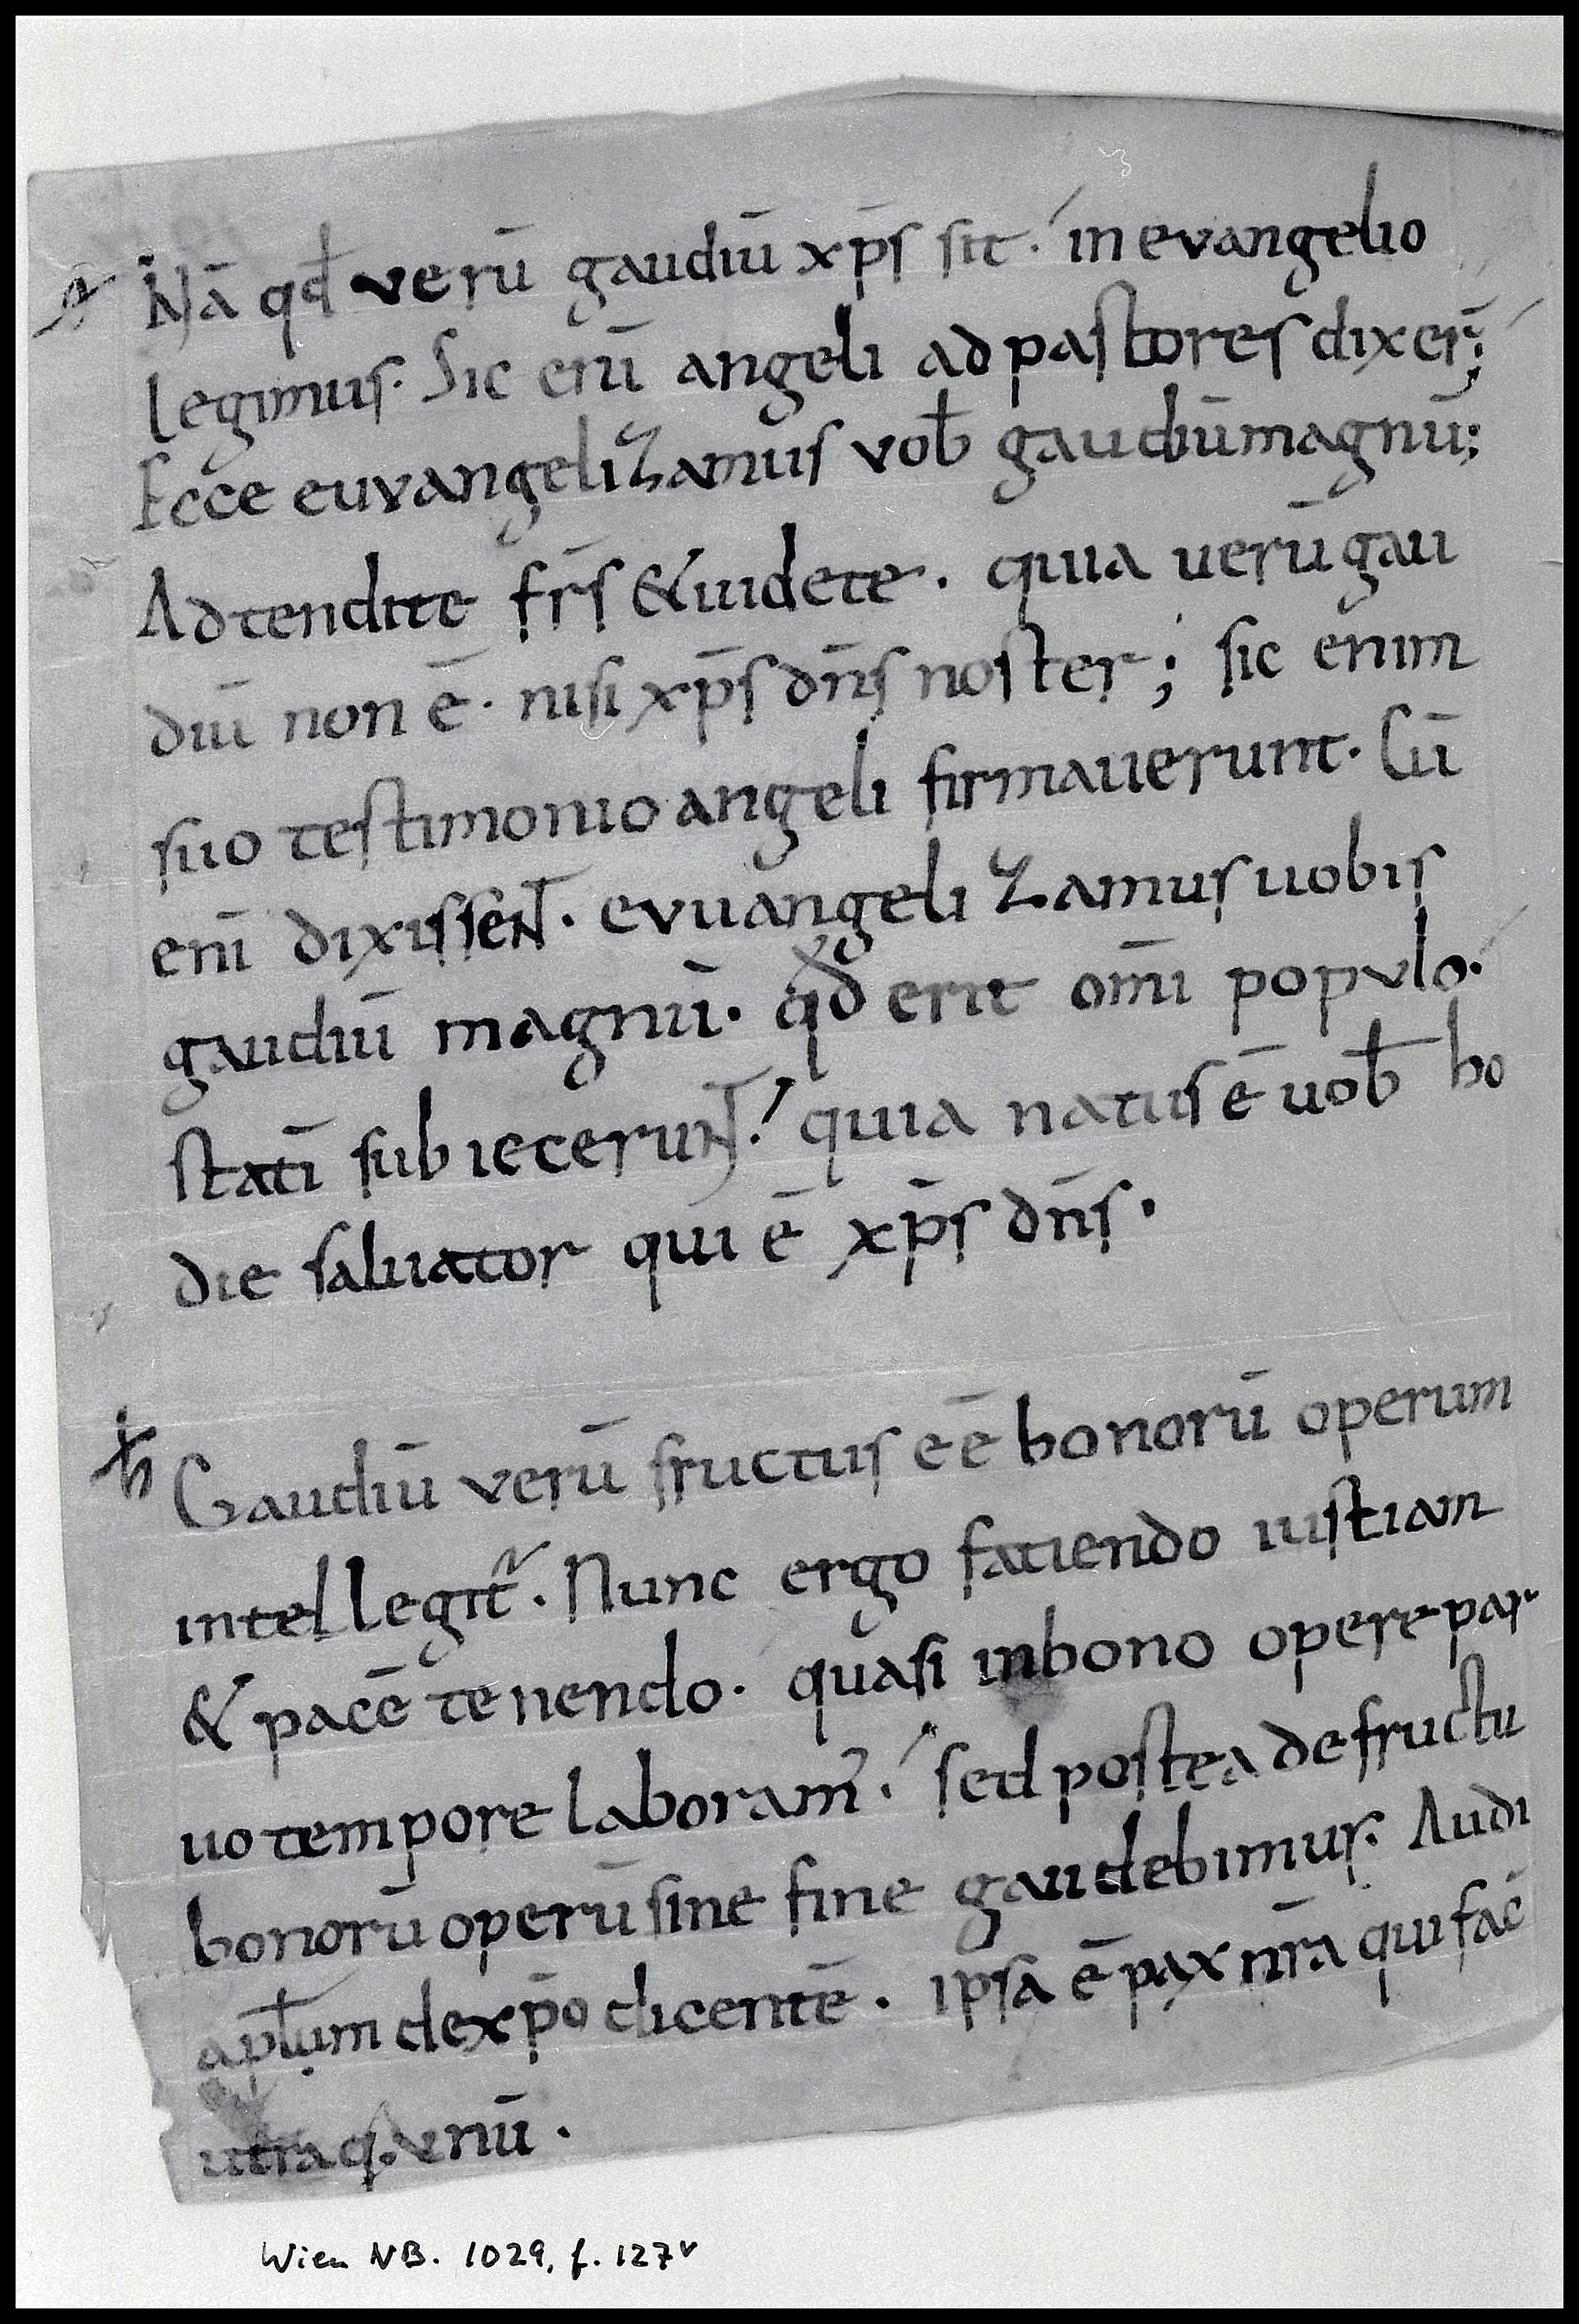 Nā qđ verū gaudiū xp̄s sit· in evangelio
legimus· Sic enī angeli ad pastores dixer̄;
Ecce euvangelizamus vob̄ gaudiū magnū;
Adtendite fr̄s & uidete· quia uerū gau
diū non ē· nisi xp̄s dn̄s noster; sic enim
suo testimonio angeli firmauerunt· Cū
enī dixissent· evuangelizamus uobis
gaudiū magnū· qđ erit om̄i populo·
statī subiecerunt· quia natus ē uob̄ ho
die saluator qui ē xp̄s dn̄s·
Gaudiū verū fructus eē bonorū operum
intellegit᷑· Nunc ergo fatiendo iustiam
& pacē tenendo· quasi in bono opere par
uo tempore laboram̄· sed postea de fructu
bonorū operū sine fine gaudebimus· Audi
apl̄um de xp̄o dicentē· ipsa ē pax nr̄a qui fac̄
utraq· unū·
Wien NB. 1029, f. 127v